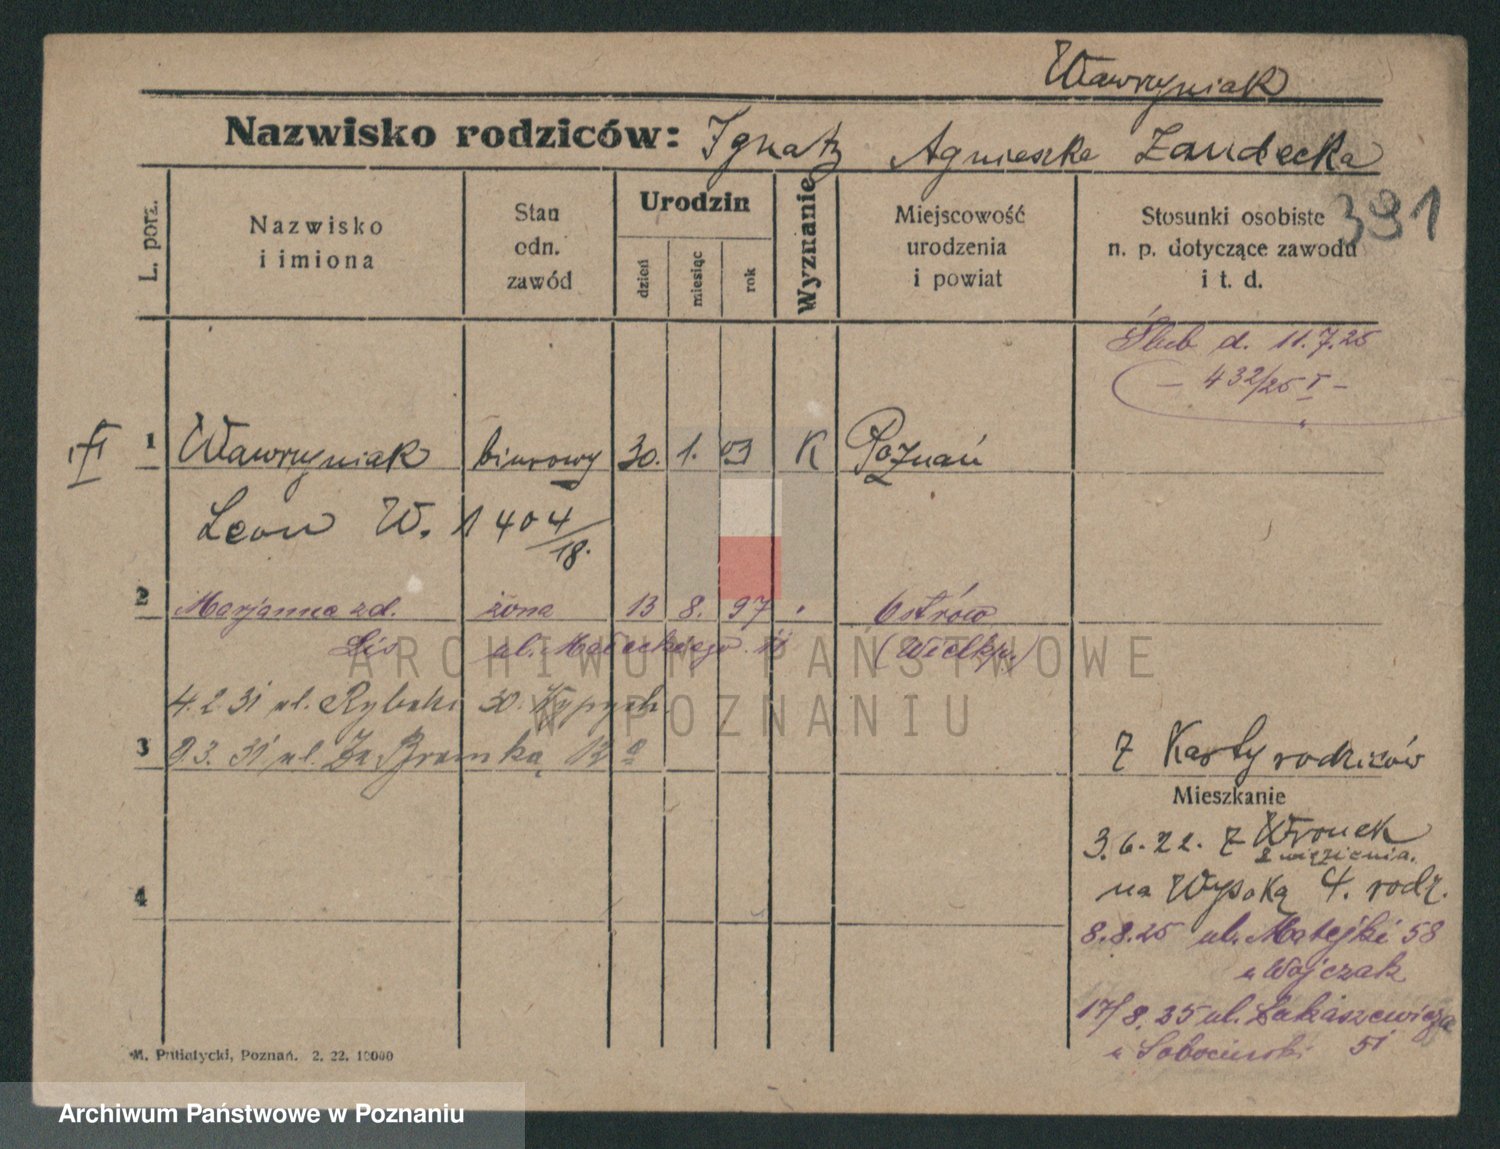 Wawrzyniak
Nazwisko rodziców: Ignatz Agnieszka Zandecka
391
L. porz.
Nazwisko
i imiona
Stan
odn.
zawód
Urodzin
dzień
miesiąc
rok
Wyznanie
Miejscowość
urodzenia
i powiat
Stosunki osobiste
n. p. dotyczące zawodu
i t. d.
Ślub d. 11.7.25
- 432/25 I -
VI 1 Wawrzyniak biurowy 30. 1. 03 K Poznań
Leon W. 1404/18.
2 Marjanna zd. żona 13 8. 97 . Ostrów
Lis ul. Małeckiego 11 (Wielkp.)
4.2.31 ul. Rybaki 30.
3 9.3.31 ul. Za Bramką 12a
Z Karty rodziców
Mieszkanie
3.6.22. z Wronek
z więzienia.
na Wysoką 4. rodz.
4
8.8.25 ul. Matejki 58
u Wojczak
17/8.25 ul. Łukaszewicza
u Sobocinski 51
M. Putiatycki, Poznań. 2. 22. 10000
ARCHIWUM PAŃSTWOWE
W POZNANIU
Archiwum Państwowe w Poznaniu